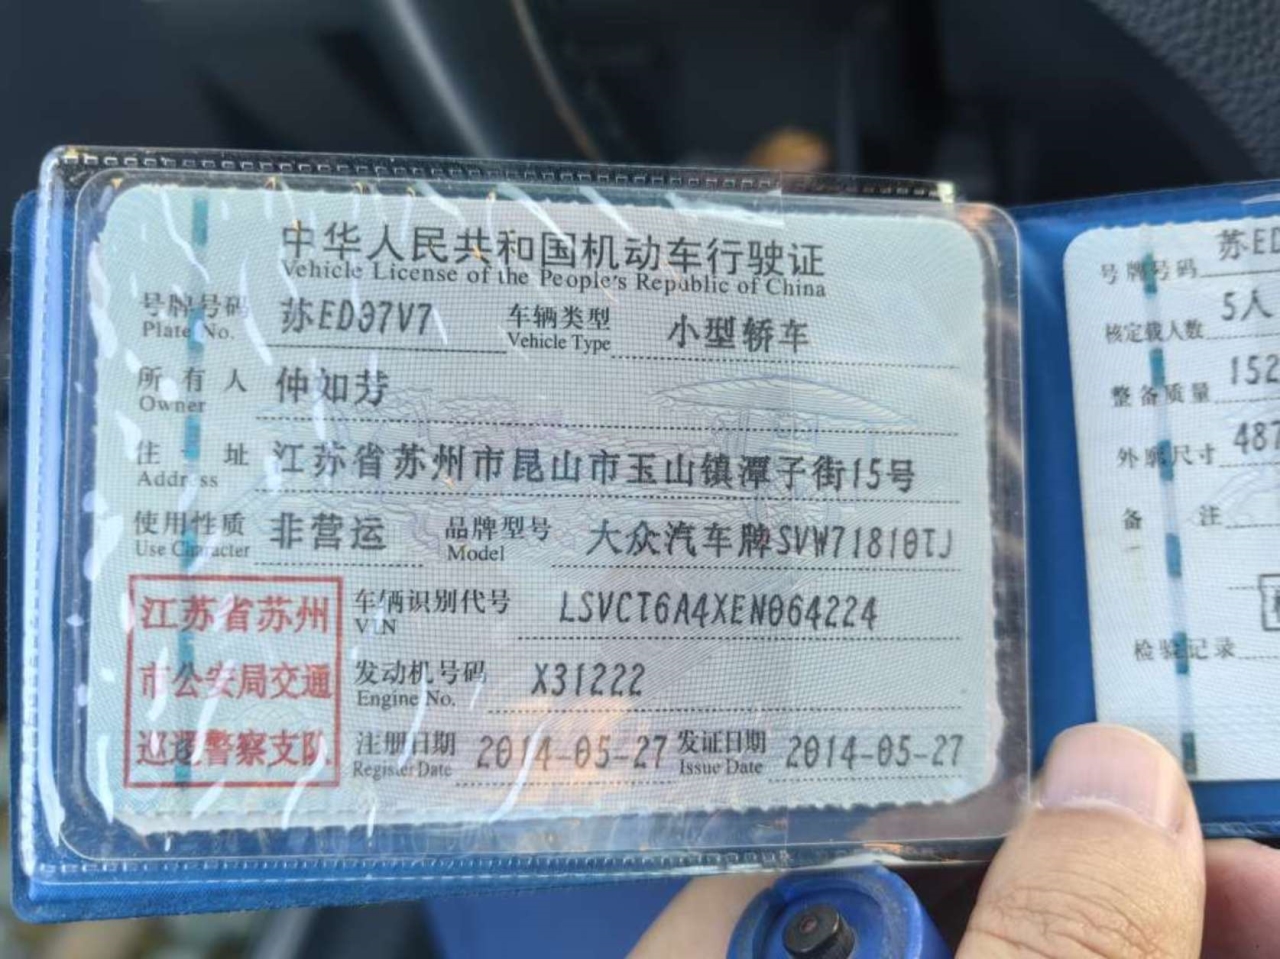 中华人民共和国机动车行驶证
Vehicle License of the People's Republic of China
号牌号码 苏ED37V7 车辆类型 小型轿车
Plate No. Vehicle Type
所有人 仲如芳
Owner
住址 江苏省苏州市昆山市玉山镇潭子街15号
Address
使用性质 非营运 品牌型号 大众汽车牌SVW71810TJ
Use Character Model
江苏省苏州
市公安局交通
巡逻警察支队
车辆识别代号 LSVCT6A4XEN064224
VIN
发动机号码 X31222
Engine No.
注册日期 2014-05-27 发证日期 2014-05-27
Register Date Issue Date
号牌号码 苏ED
核定载人数 5人
整备质量 152
外廓尺寸 487
备注
检验记录